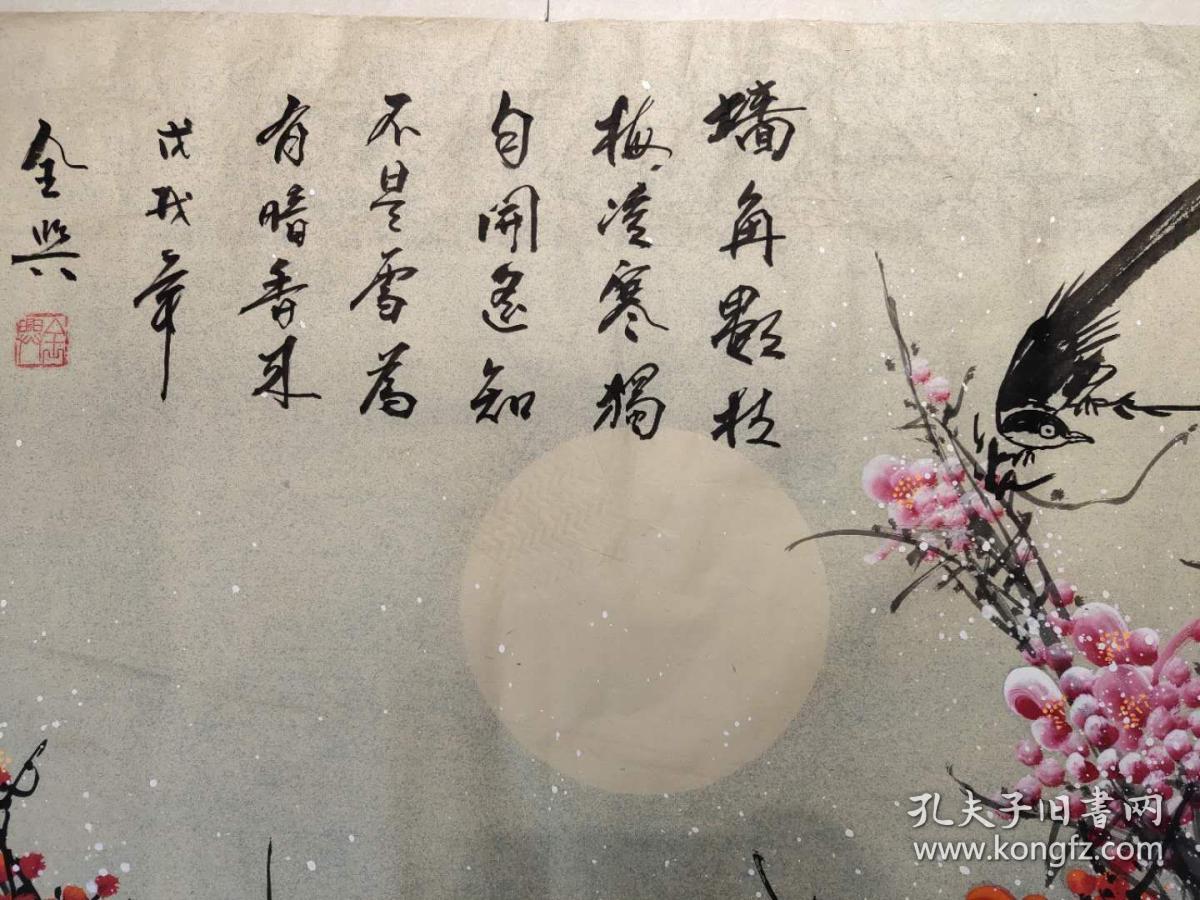 墙角數枝
梅凌寒獨
自開遙知
不是雪為
有暗香来
戊戌年
金興
金興
孔夫子旧書网
www.kongfz.com